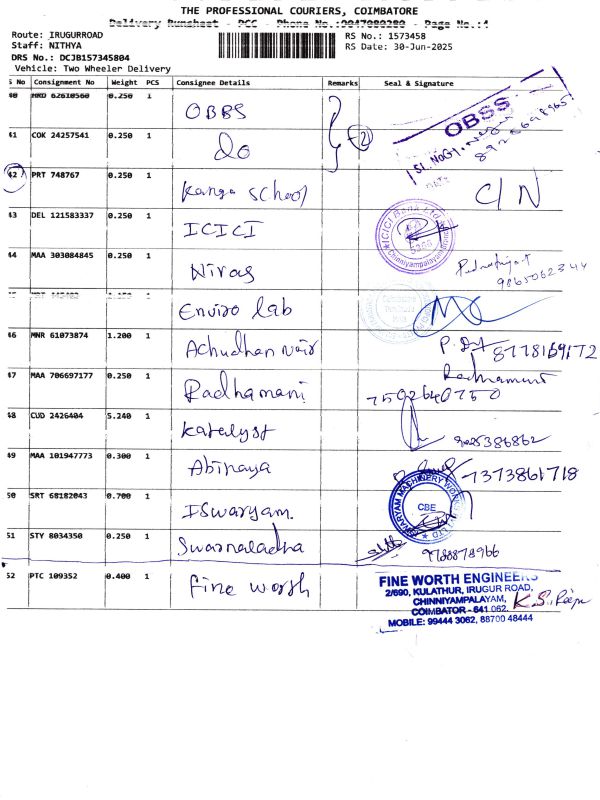 THE PROFESSIONAL COURIERS, COIMBATORE
Delivery Runsheet - PCC - Phone No.:9047088280 - Page No.:4
Route: IRUGURROAD
Staff: NITHYA
DRS No.: DCJB157345804
Vehicle: Two Wheeler Delivery
RS No.: 1573458
RS Date: 30-Jun-2025
S No Consignment No Weight PCS Consignee Details Remarks Seal & Signature
40 62610560 0.250 1 OBBS
OBSS
41 COK 24257541 0.250 1 do
42 PRT 748767 0.250 1 Kanga School C/N
43 DEL 121583337 0.250 1 ICICI
ICICI Bank Ltd
Chinniyampalayam
44 MAA 303084845 0.250 1 Niras
9865062344
Enviro lab
46 MNR 61073874 1.200 1 Achudhan Nair
8778169172
47 MAA 706697177 0.250 1 Radhamani
7592640750
48 CUD 2426404 5.240 1 Katalyst
9025386862
49 MAA 101947773 0.300 1 Abinaya
7373861718
50 SRT 68182043 0.700 1 ISwaryam.
CBE
51 STY 8034350 0.250 1 Swarnaladha
9788878966
52 PTC 109352 0.400 1 fine worth
FINE WORTH ENGINEERS
2/690, KULATHUR, IRUGUR ROAD,
CHINNIYAMPALAYAM,
COIMBATOR - 641 062.
MOBILE: 99444 3062, 88700 48444